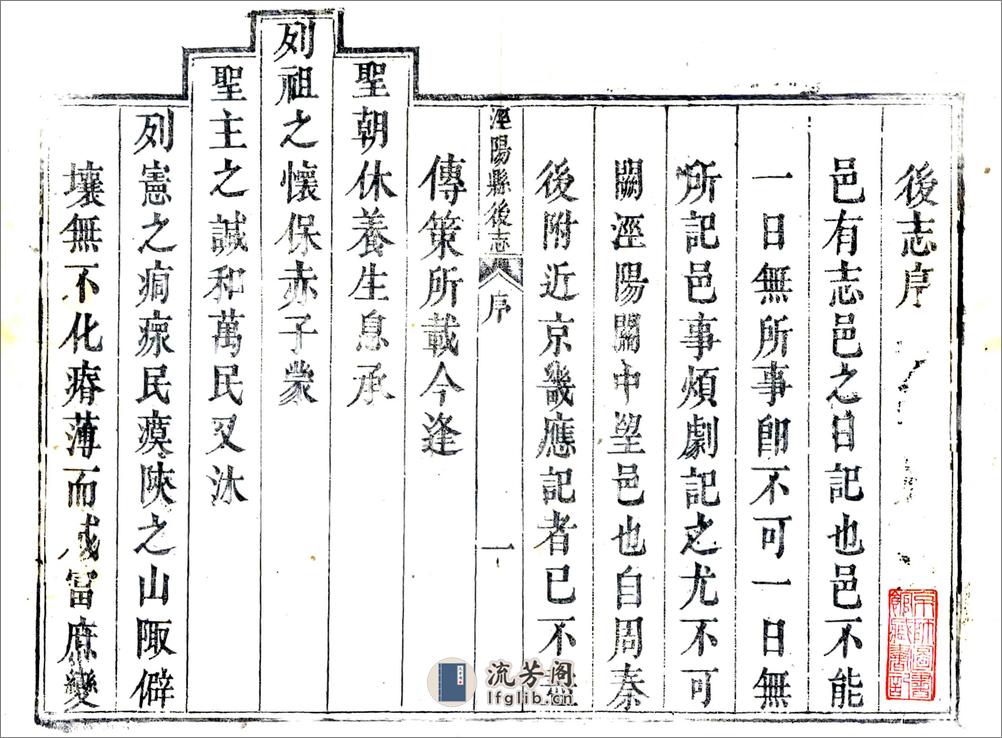 後志序
邑有志邑之日記也邑不能
一日無所事即不可一日無
所記邑事煩劇記之尤不可
闕涇陽關中望邑也自周秦
後附近京畿應記者已不
涇陽縣後志 序 一
傳策所載今逢
聖朝休養生息承
列祖之懷保赤子蒙
聖主之諴和萬民又沐
列憲之痌瘝民瘼陝之山陬僻
壤無不化瘠薄而咸富庶變
流芳阁
lfglib.com